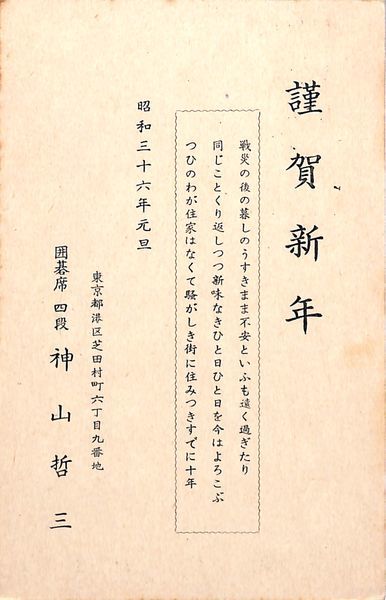 謹賀新年
戦災の後の暮しのうすきまま不安といふも遠く過ぎたり
同じことくり返しつつ新味なきひと日ひと日を今はよろこぶ
つひのわが住家はなくて騒がしき街に住みつきすでに十年
昭和三十六年元旦
東京都港区芝田村町六丁目九番地
囲碁席 四段 神山哲三